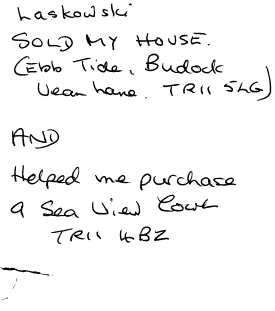 Laskowski
SOLD MY HOUSE.
(Ebb Tide, Budock
Vean Lane. TR11 5LG)
AND
Helped me purchase
9 Sea View Court
TR11 4BZ